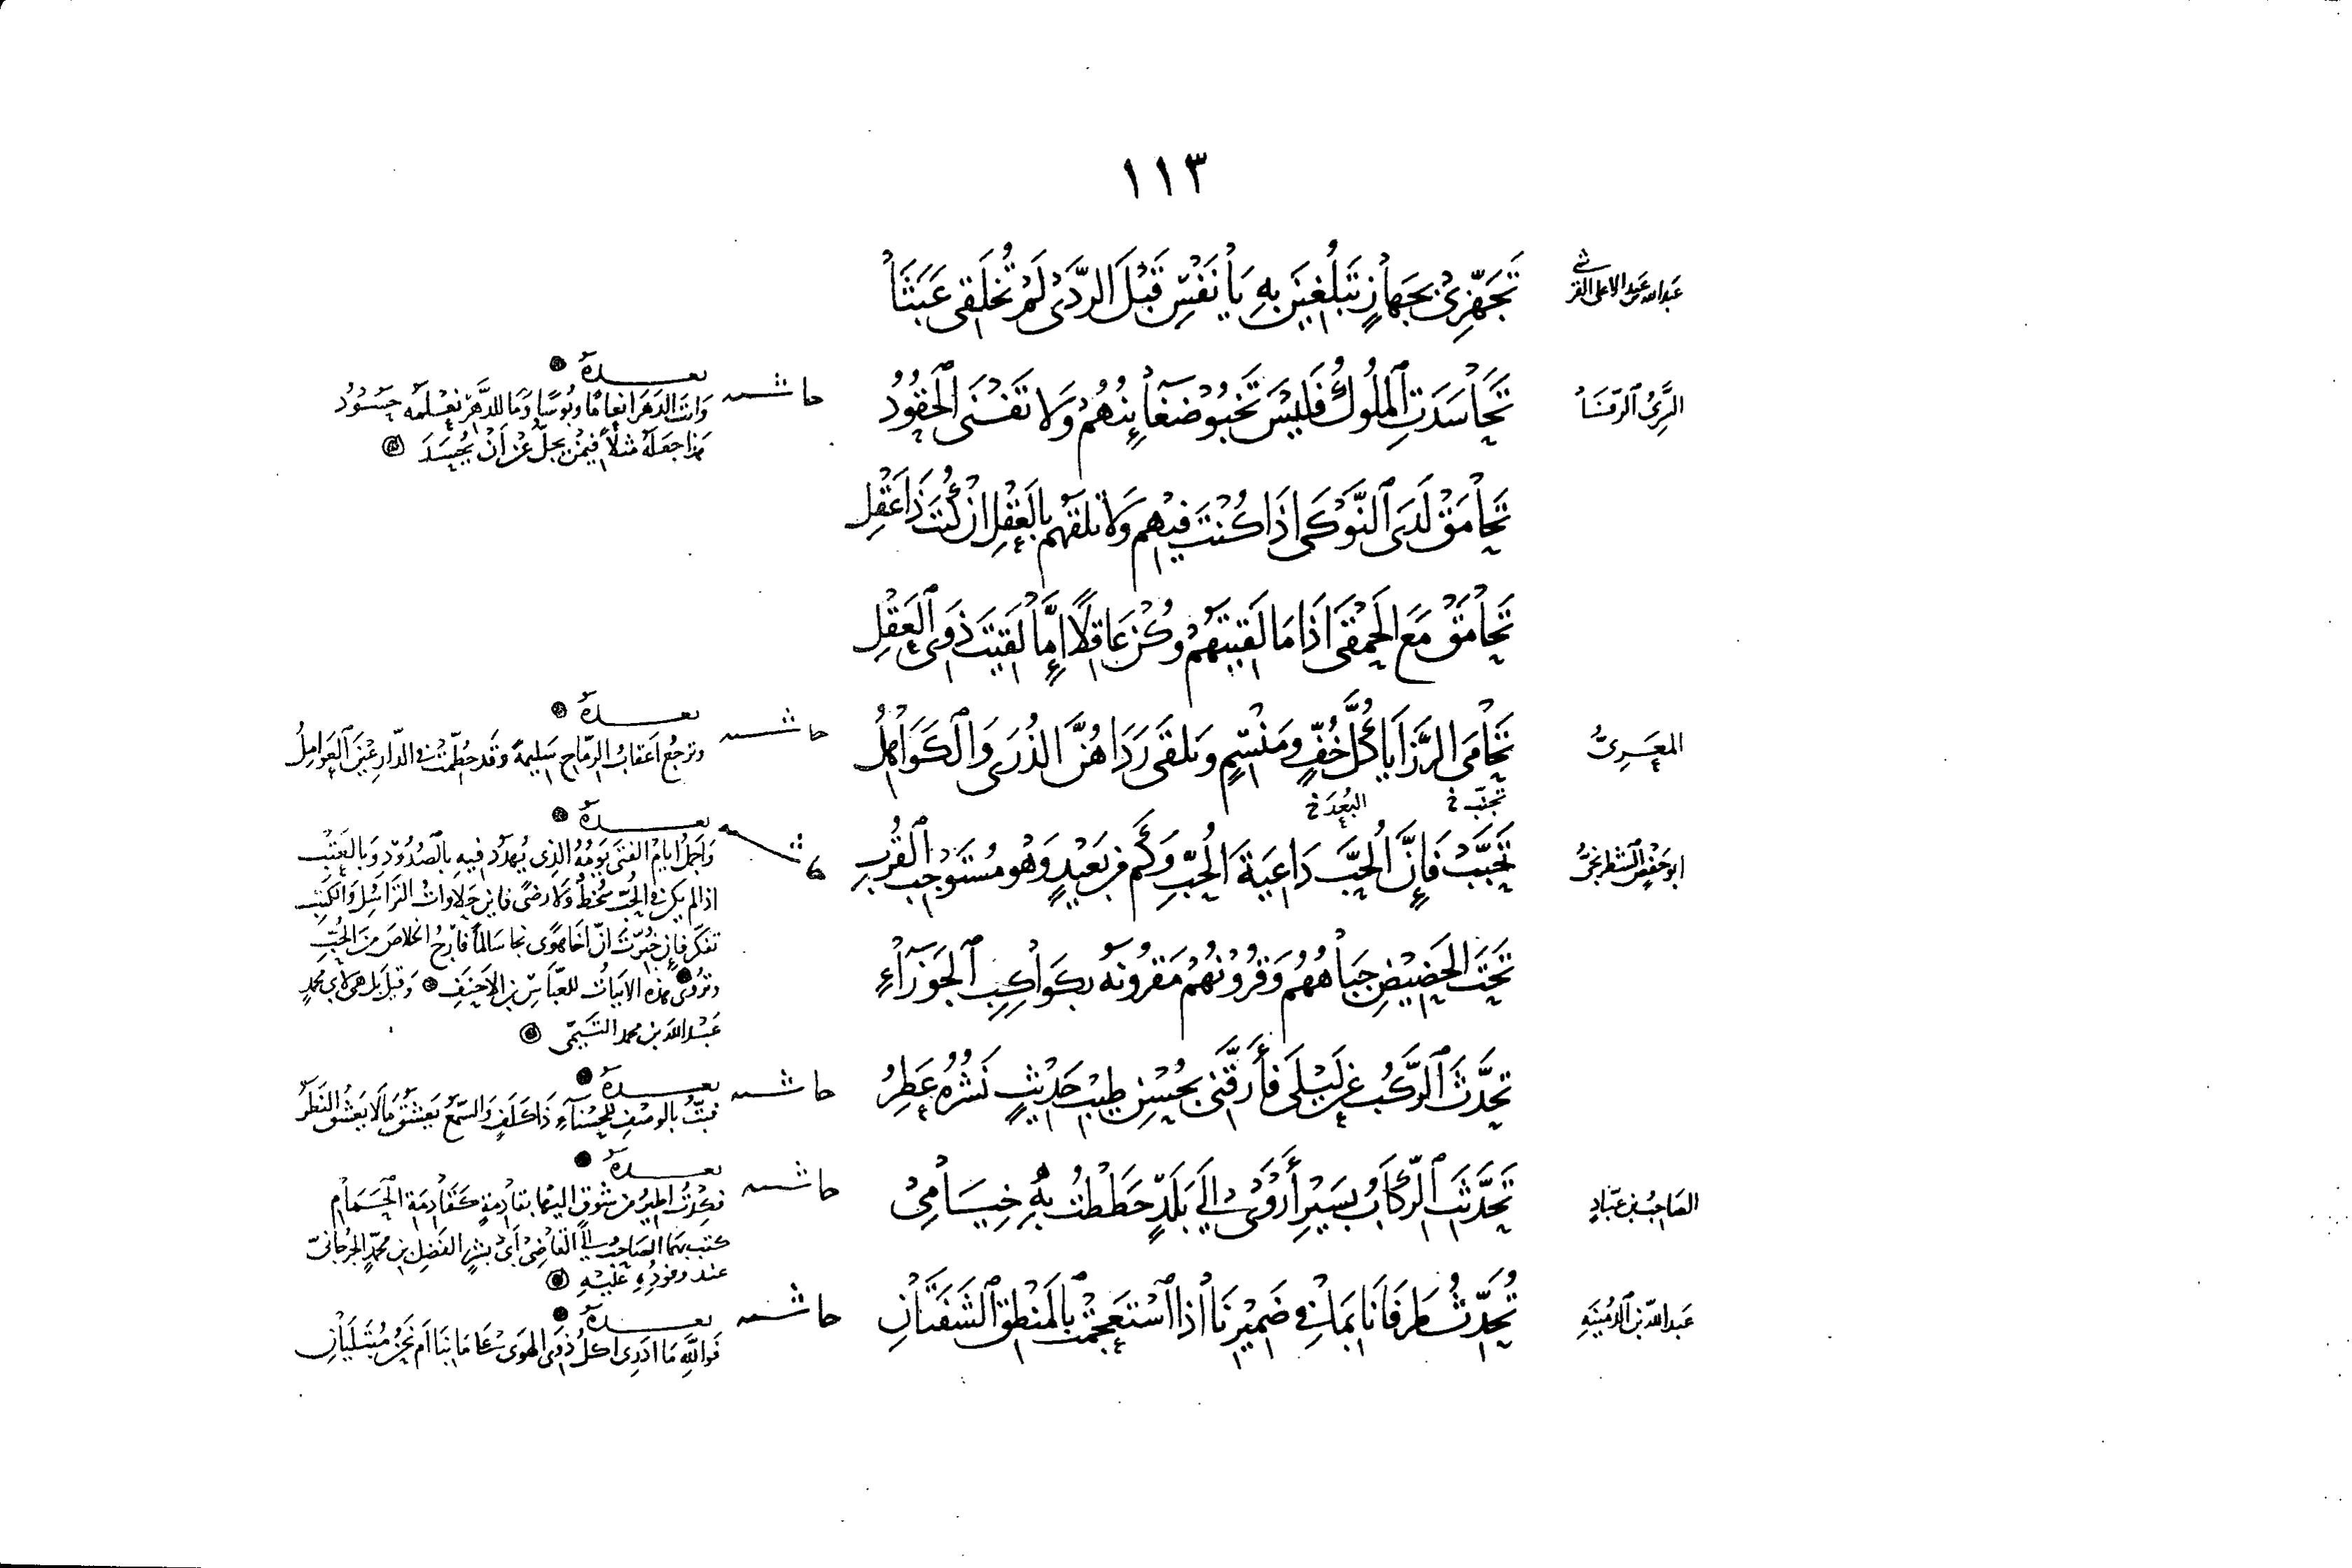 ١١٣
عبد الله بن عبد الاعلى القرشي
تَجَهَّزِي بِجَهَازٍ تَبْلُغِينَ بِهِ يَا نَفْسِ قَبْلَ الرَّدَى لَمْ تُخْلَقِي عَبَثَا
السَّرِيُّ الرَّفَّاءُ
تَحَاسَدَتِ الْمُلُوكُ فَلَيْسَ تَخْبُو ضَغَائِنُهُمْ وَلَا تَفْنَى الْحُقُودُ
حاشيه
بعده
وَانتَ الدَهرَ انعامًا وبُوسًا وَمَا للدَّهْرِ نَعْلمه حَسُودُ
هَذا جَعَلَهُ مَثلًا فِيمَنْ يجلُّ عَنْ اَنْ يُحسَدَ
تَحَامَقْ لَدَى النَّوْكَى اذَا كُنْتَ فيهِم وَلَا تلقَهُم بِالعَقْلِ ان كُنْتَ ذَا عَقْلِ
تَحَامَقْ مَعَ الحَمْقَى اذَا مَا لَقِيتَهُمْ وَكُنْ عَاقِلًا إِمَّا لَقِيتَ ذَوِي الْعَقْلِ
المعَرِىُّ
تَحَامَى الرَّزَايَا كُلَّ خُفٍّ وَمَنْسِمٍ وَتلقَى رَدَاهُنَّ الذُرَى وَالْكَوَاهِلُ
حاشيه
بعده
وترجعُ اعقابُ الرِّمَاحِ سَلِيمةً وَقَد حُطِّمَتْ فى الدَّارِعِينَ الْعَوَامِلُ
تجنّب خ
البُعد خ
ابو حَفْصٍ الشطرنجىُّ
تَحَبَّبْ فَإِنَّ الْحُبَّ دَاعِيَةُ الْحُبِّ وَكَم مِن بَعِيدٍ وَهْوَ مُسْتَوْجِبُ الْقُرْبِ
بعده
وَاَجملُ ايامِ الفتَى يَومُهُ الذِى يُهدَّد فِيهِ بالصُدُودِ وَبالعَتْبِ
اذا لم يكن فى الحُبّ سُخطٌ وَلا رضًى فاين حَلاواتُ التَرَاسُلِ وَالكُتْبِ
تفكّر فإن حُدّثتَ انّ اخا هوًى نجا سَالمًا فارجُ الخلاصَ مِنَ الحُبِّ
وتُروَى هذه الابيَاتُ للعبَّاسِ بن الاَحنَفِ وَقيلَ بل هىَ لابى محمدٍ
عَبْد الله بن محمد التَّيمىّ
تَحْتَ الحَضِيضِ جِبَاهُهُمْ وَقُرُونُهُمْ مَقْرُونَةٌ بِكَوَاكِبِ الْجَوْزَاءِ
تَحَدَّثَ الرَّكْبُ عَن لَيْلَى فَأَرَّقَنِى بِحُسْنِ طِيبِ حَدِيثٍ نَشْرُهُ عَطِرُ
حاشيه
بعده
فبتُّ بالوصفِ للحَسْناءِ ذَا كلَفٍ وَالسّمعُ يَعشَقُ مَا لَا يَعشَقُ النَظَرُ
الصَاحِبُ بن عَبّادٍ
تَحَدَّثَتِ الرِّكَابُ بِسَيْرِ أَرْوَى إِلَى بَلَدٍ حَطَطْتُ بِهِ خِيَامِى
حاشيه
بعده
فكدْتُ اطيرُ من شوقٍ اليها بقادِمةٍ كَقَادِمَةِ الْحَمَامِ
كتب بهما الصاحبُ الى القاضى ابى بشرٍ الفضلِ بن محمّدٍ الجُرجانىّ
عند وفودِهِ عَليْهِ
عَبد الله بن الدُّمينَةِ
تُحَدِّثُ طَرفَانَا بِمَا فِى ضَمِيرِنَا اذا اسْتَعجَمَتْ بِالْمَنْطِقِ الشَّفَتَانِ
حاشيه
بعده
فَوَاللهِ مَا ادرى اكُلُّ ذَوِى الهَوَى عَلَى مَا بنَا اَم نَحنُ مُبتَلَيَانِ